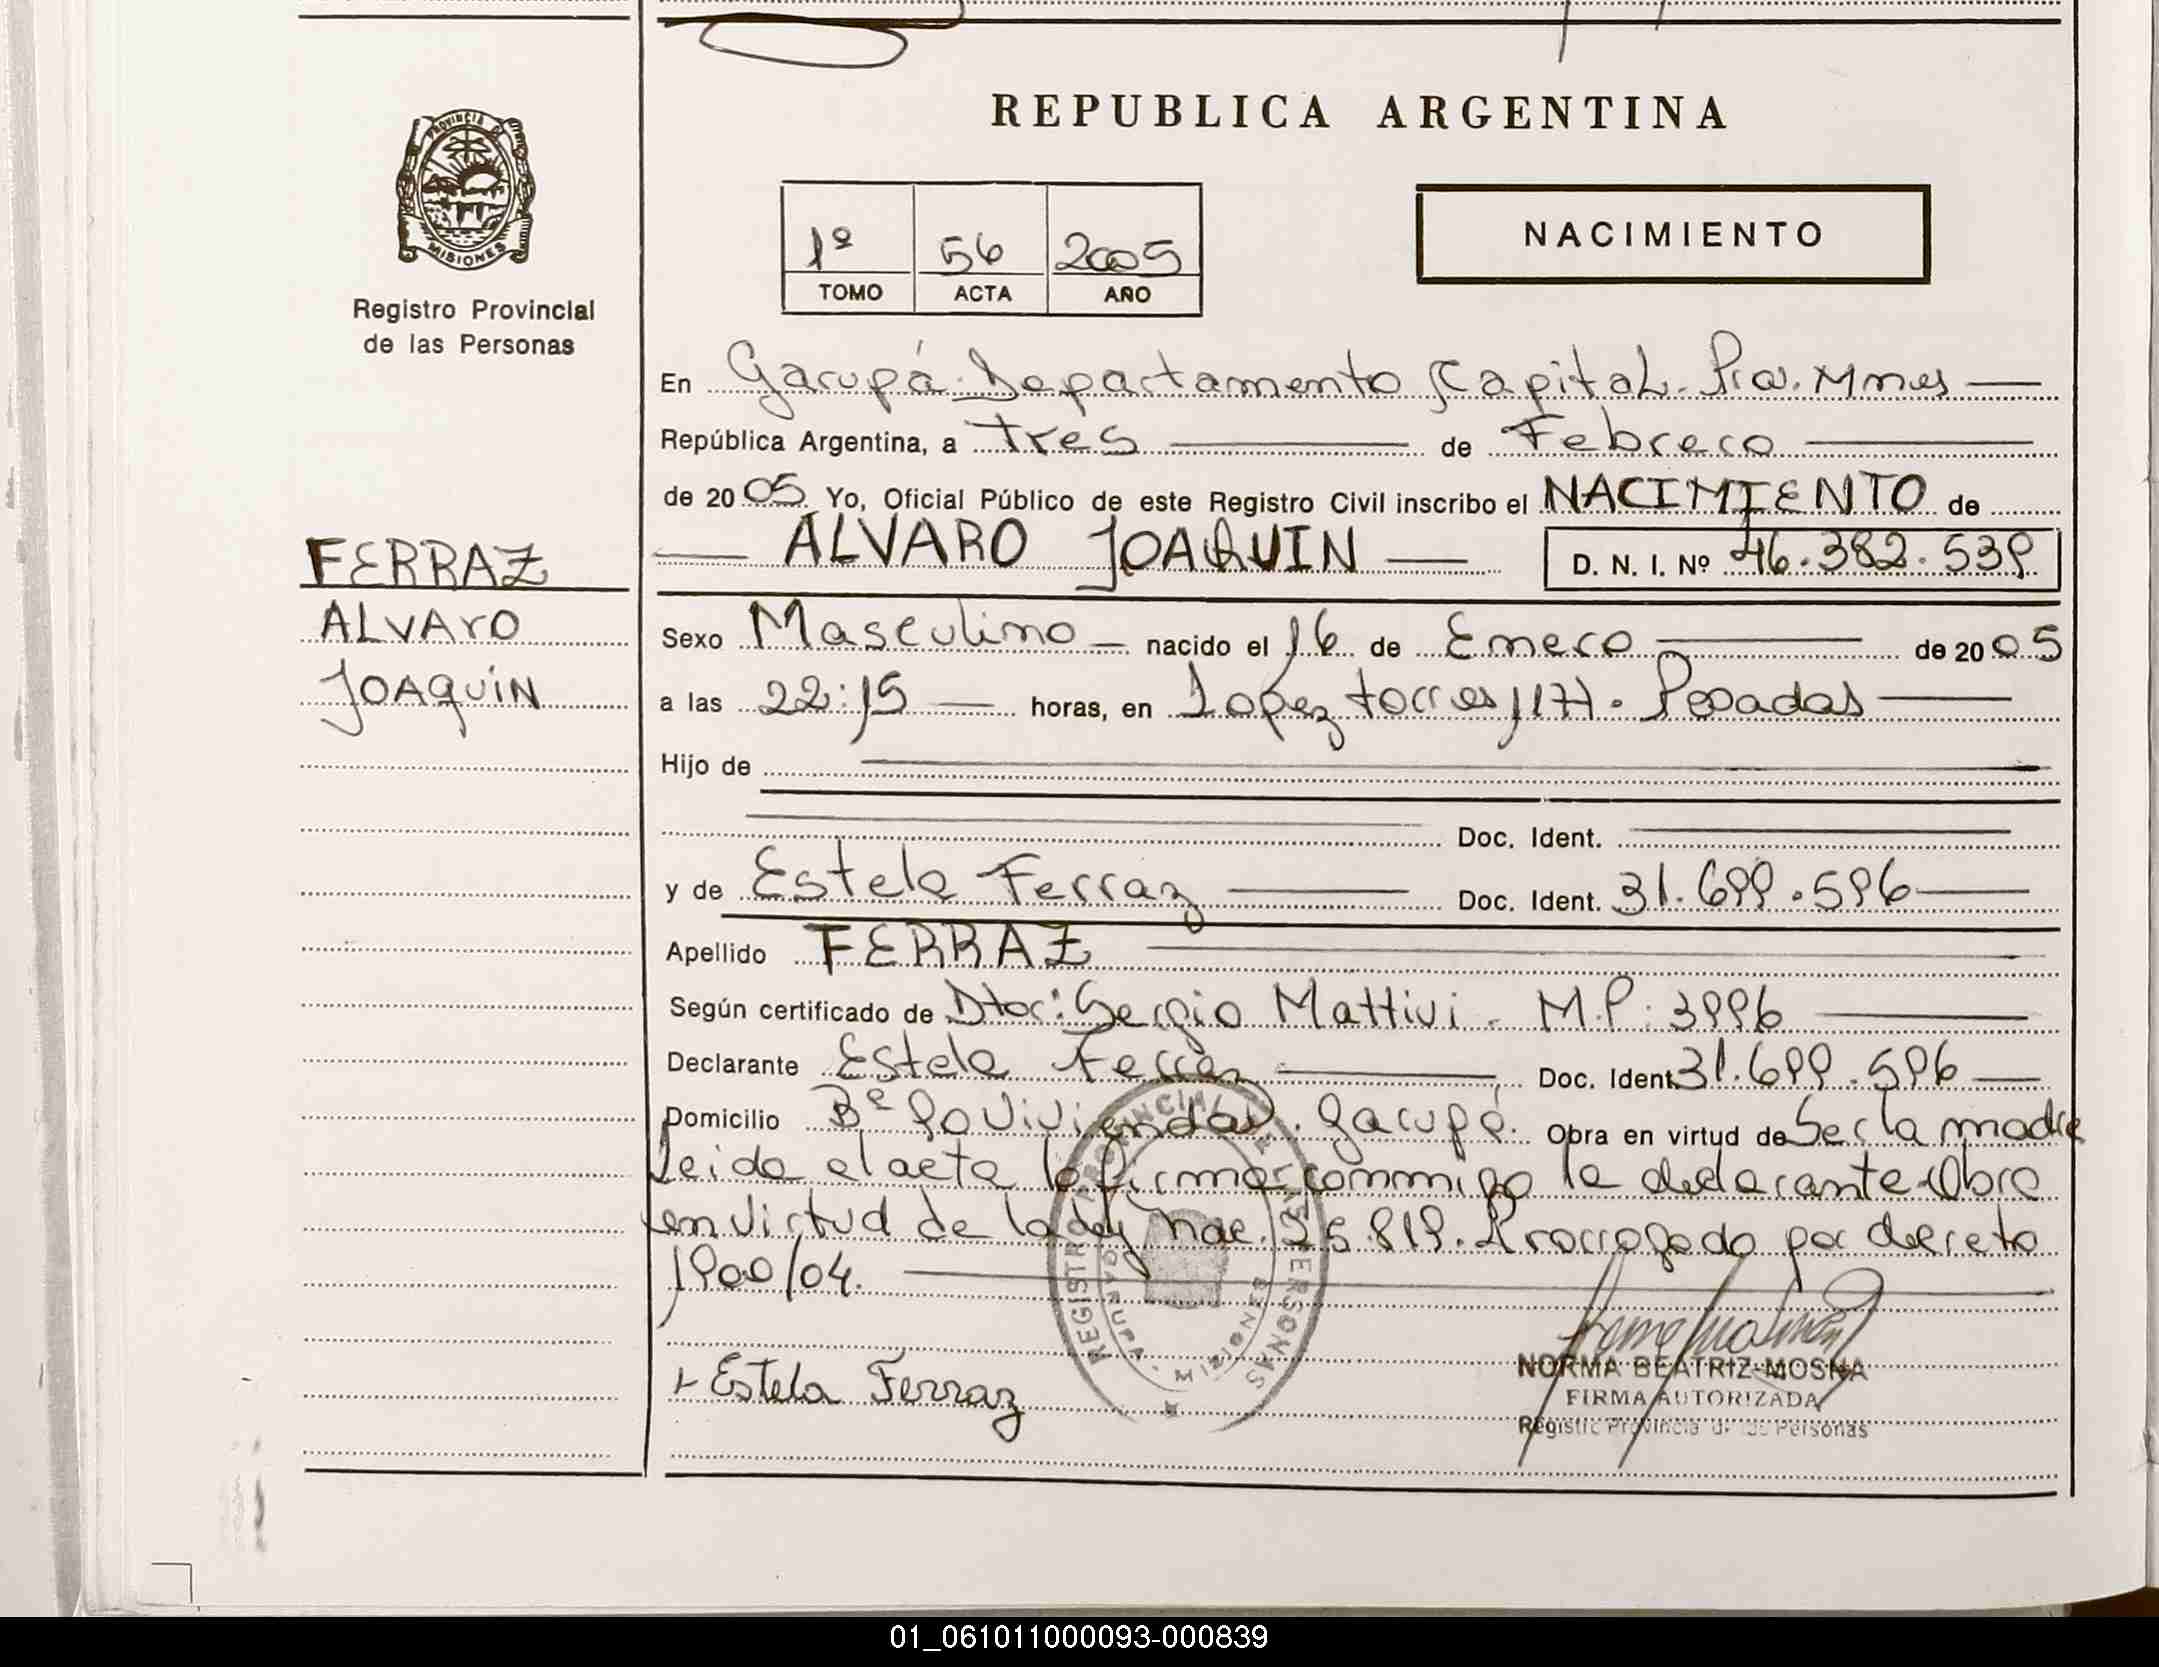 REPUBLICA ARGENTINA
PROVINCIA DE
MISIONES
Registro Provincial
de las Personas
1º 56 2005
TOMO ACTA AÑO
NACIMIENTO
En Garupá. Departamento Capital. Pcia. Mnes
República Argentina, a tres de Febrero
de 2005 Yo, Oficial Público de este Registro Civil inscribo el NACIMIENTO de
ALVARO JOAQUIN D. N. I. Nº 46.382.539
FERRAZ
ALVARO
JOAQUIN
Sexo Masculino nacido el 16 de Enero de 2005
a las 22:15 horas, en Lopez torres 1177. Posadas
Hijo de
Doc. Ident.
y de Estela Ferraz Doc. Ident. 31.699.596
Apellido FERRAZ
Según certificado de Dtor: Sergio Mattivi. M.P: 3996
Declarante Estela Ferraz Doc. Ident. 31.699.596
Domicilio Bº 90 Viviendas. Garupá. Obra en virtud de Ser la madre
Leida el acta la firma conmigo la declarante. Obro
en virtud de la ley nac. 25.819. Prorrogado por decreto
1900/04.
REGISTRO PROVINCIAL DE LAS PERSONAS
GARUPA - MISIONES
Estela Ferraz
NORMA BEATRIZ MOSNA
FIRMA AUTORIZADA
Registro Provincial de las Personas
01_061011000093-000839